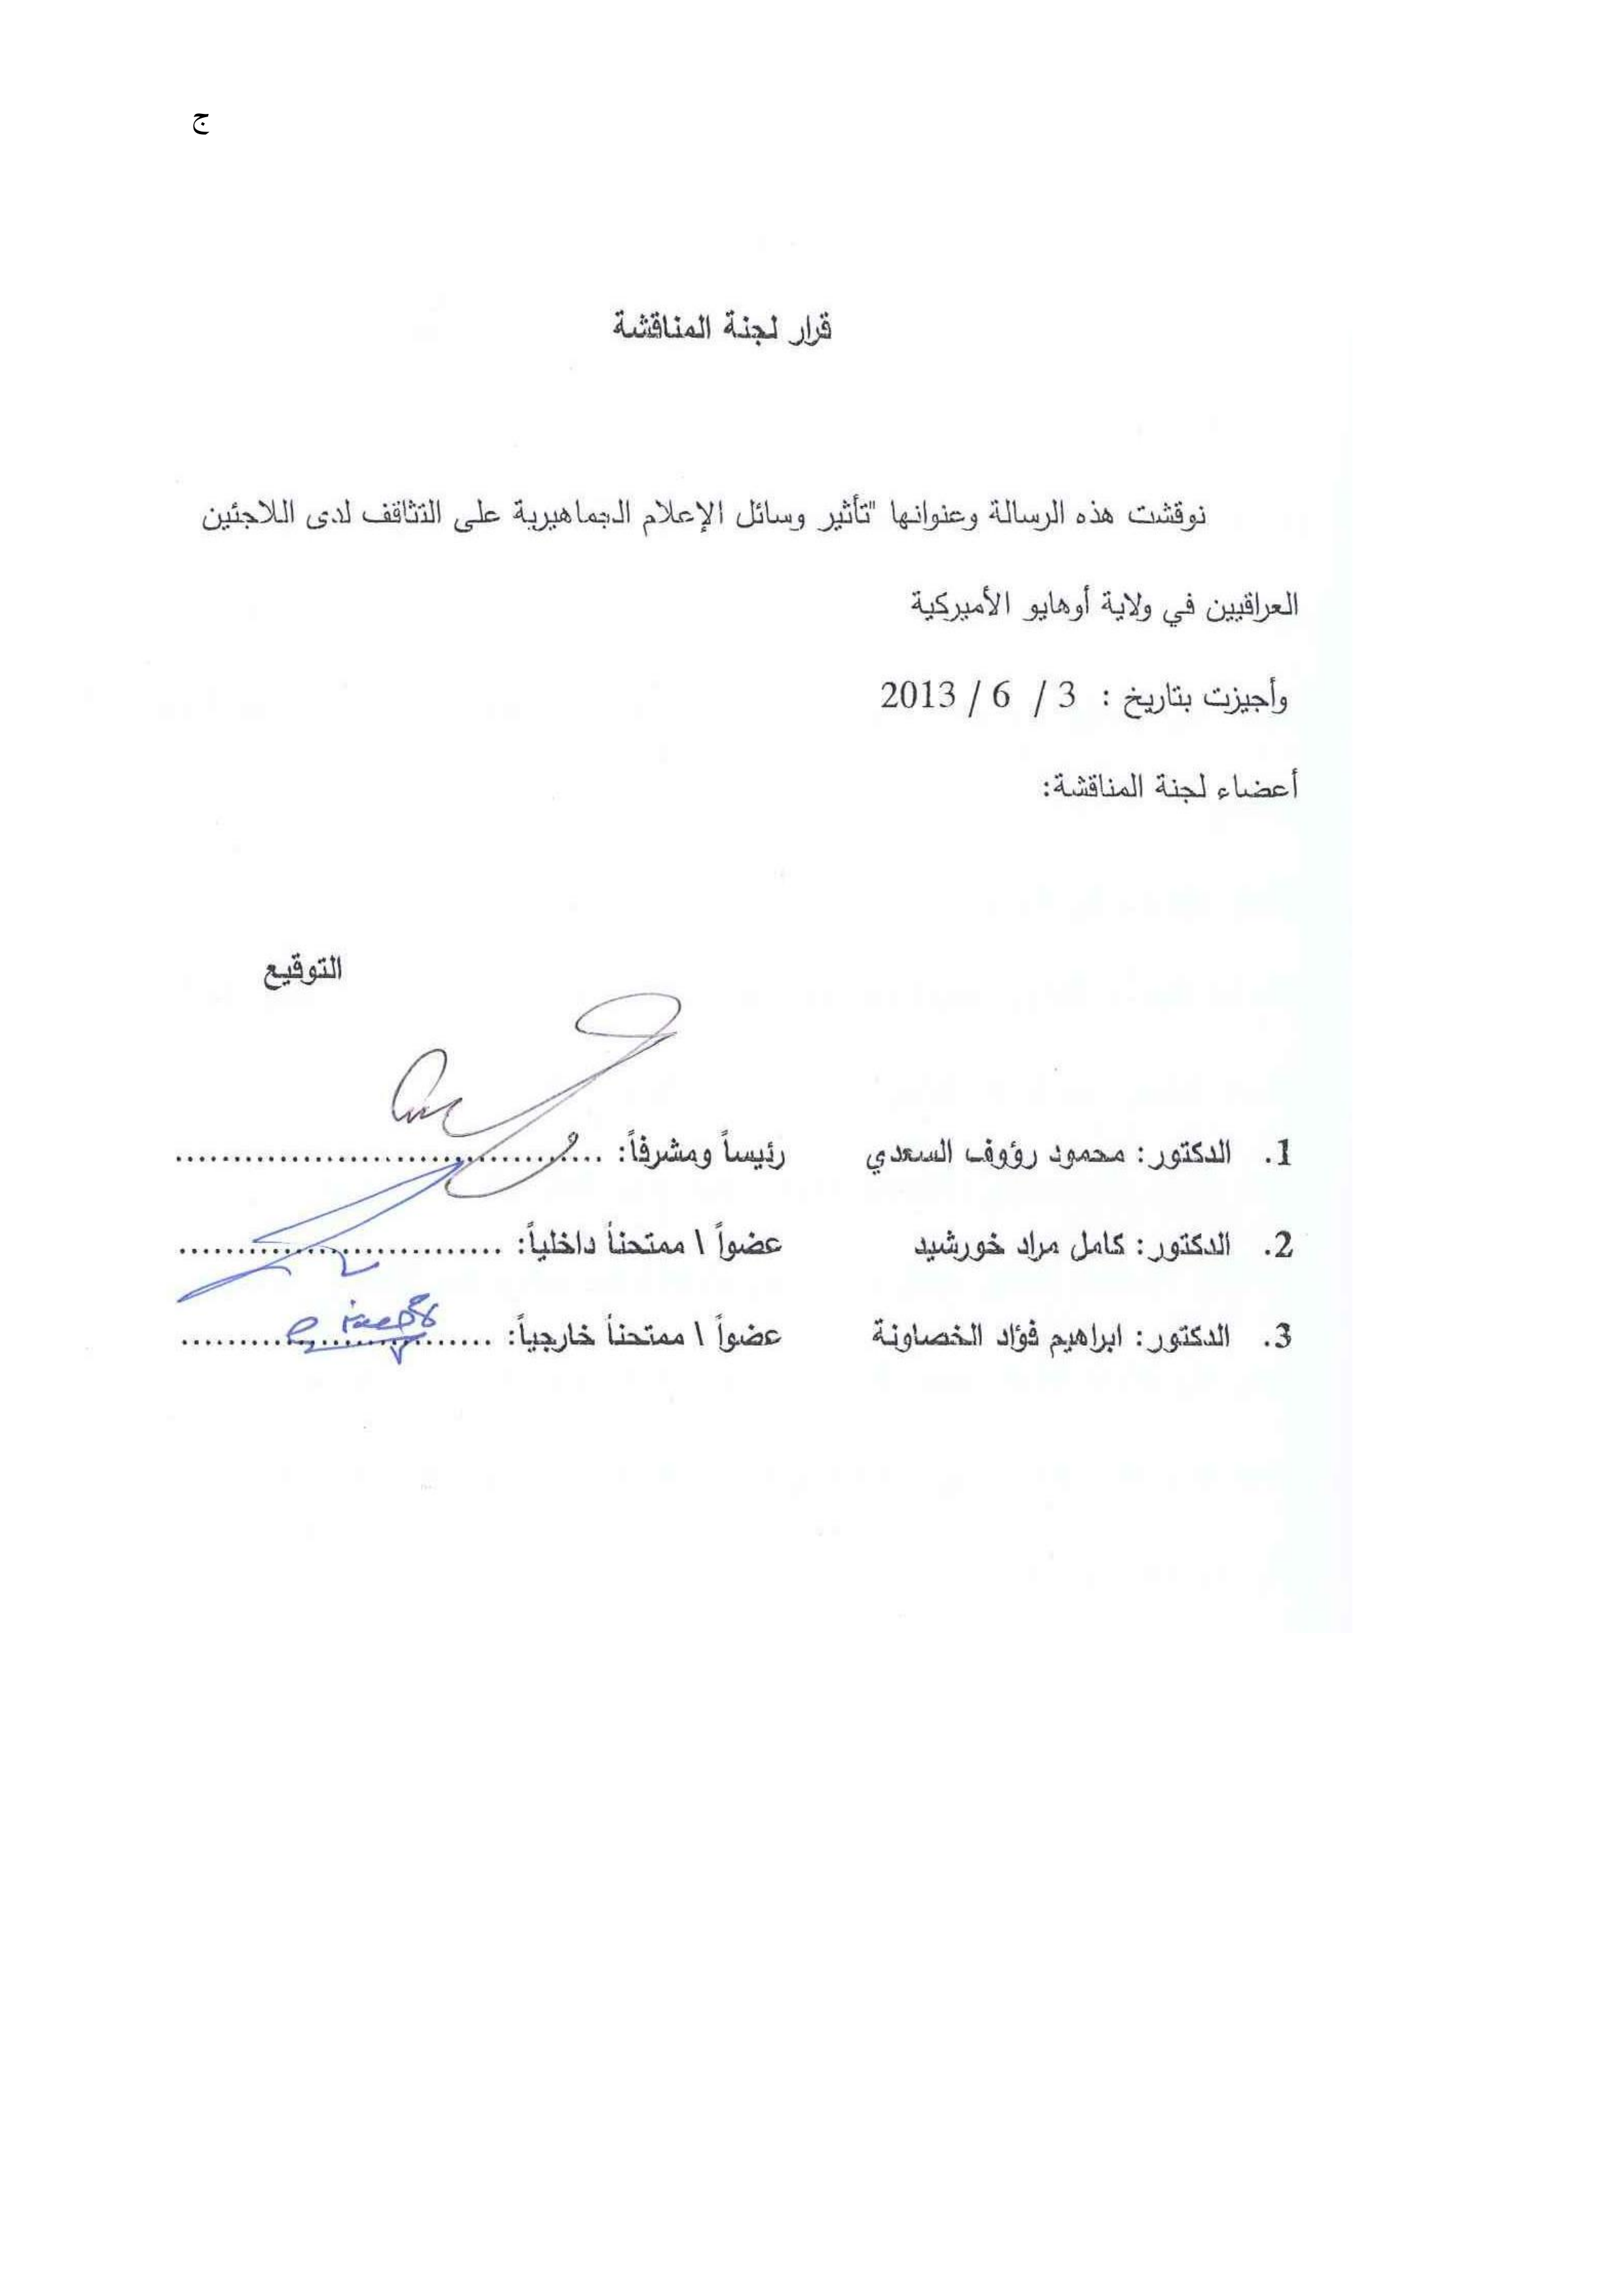 ج
قرار لجنة المناقشة
نوقشت هذه الرسالة وعنوانها "تأثير وسائل الإعلام الجماهيرية على التثاقف لدى اللاجئين
العراقيين في ولاية أوهايو الأميركية
وأجيزت بتاريخ : 3 / 6 / 2013
أعضاء لجنة المناقشة:
التوقيع
1. الدكتور: محمود رؤوف السعدي رئيساً ومشرفاً: .....................................
2. الدكتور: كامل مراد خورشيد عضواً \ ممتحناً داخلياً: ............................
3. الدكتور: ابراهيم فؤاد الخصاونة عضواً \ ممتحناً خارجياً: ...........................